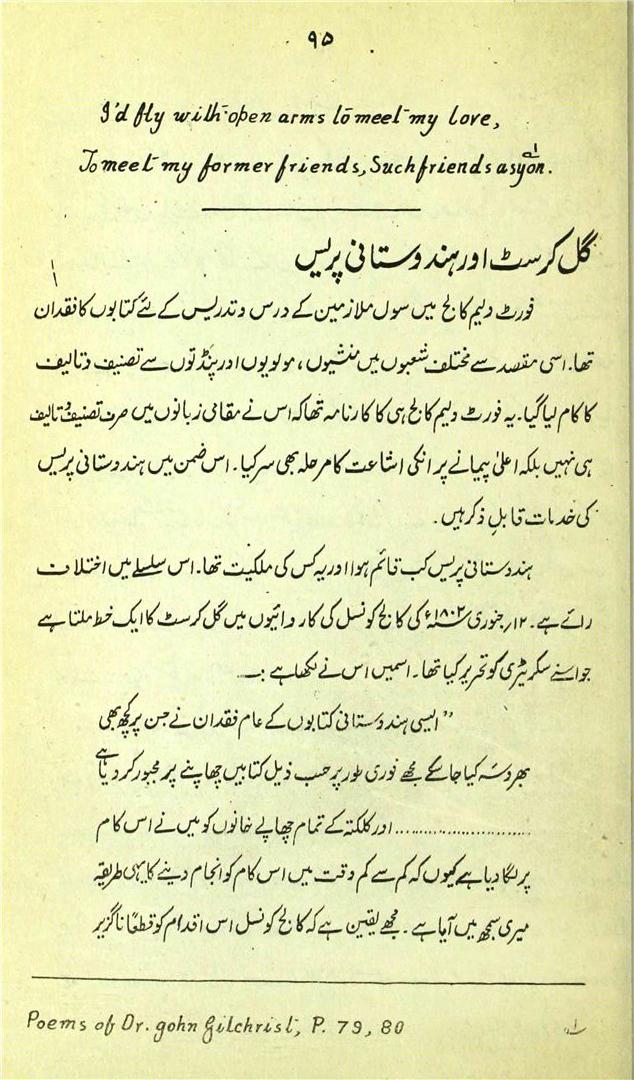 ۹۵
I'd fly with open arms to meet my love,
To meet my former friends, Such friends as yon. ۱
گل کرسٹ اور ہندوستانی پریس
فورٹ ولیم کالج میں سول ملازمین کے درس و تدریس کے لئے کتابوں کا فقدان
تھا۔ اسی مقصد سے مختلف شعبوں میں منشیوں، مولویوں اور پنڈتوں سے تصنیف و تالیف
کا کام لیا گیا۔ یہ فورٹ ولیم کالج ہی کا کارنامہ تھا کہ اس نے مقامی زبانوں میں صرف تصنیف و تالیف
ہی نہیں بلکہ اعلیٰ پیمانے پر انکی اشاعت کا مرحلہ بھی سر کیا۔ اس ضمن میں ہندوستانی پریس
کی خدمات قابلِ ذکر ہیں۔
ہندوستانی پریس کب قائم ہوا اور یہ کس کی ملکیت تھا۔ اس سلسلے میں اختلاف
رائے ہے۔ ۱۲؍ جنوری ۱۸۰۲ء کی کالج کونسل کی کاروائیوں میں گل کرسٹ کا ایک خط ملتا ہے
جو اسنے سکریٹری کو تحریر کیا تھا۔ اسمیں اس نے لکھا ہے :۔
"ایسی ہندوستانی کتابوں کے عام فقدان نے جن پر کچھ بھی
بھروسہ کیا جا سکے مجھے فوری طور پر حسب ذیل کتابیں چھاپنے پر مجبور کر دیا ہے
.............................. اور کلکتہ کے تمام چھاپے خانوں کو میں نے اس کام
پر لگا دیا ہے کیوں کہ کم سے کم وقت میں اس کام کو انجام دینے کا یہی طریقہ
میری سمجھ میں آیا ہے۔ مجھے یقین ہے کہ کالج کونسل اس اقدام کو قطعاً ناگزیر
Poems of Dr. gohn Gilchrist, P. 79, 80 ۱